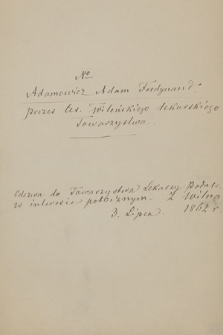 No
Adamowicz Adam Ferdynand -
prezes Ces. Wileńskiego Lekarskiego
Towarzystwa.
Odezwa do Towarzystwa Lekarzy Podols.
w interesie pobocznym. Z Wilna
3. Lipca 1862 r